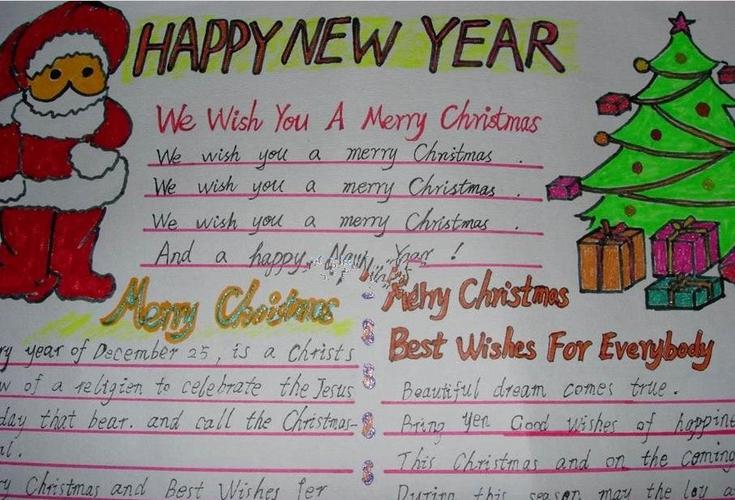 HAPPY NEW YEAR
We Wish You A Merry Christmas
We wish you a merry Christmas .
We wish you a merry Christmas .
We wish you a merry Christmas .
And a happy New Year !
Merry Christmas
ry year of December 25, is a Christs
w of a religion to celebrate the Jesus
day that bear. and call the Christmas-
al.
y Christmas and Best Wishes fer
Merry Christmas
Best Wishes For Everybody
Beautiful dream comes true.
Bring yen Good Wishes of happine
This Christmas and on the Coming
During this season may the loy a